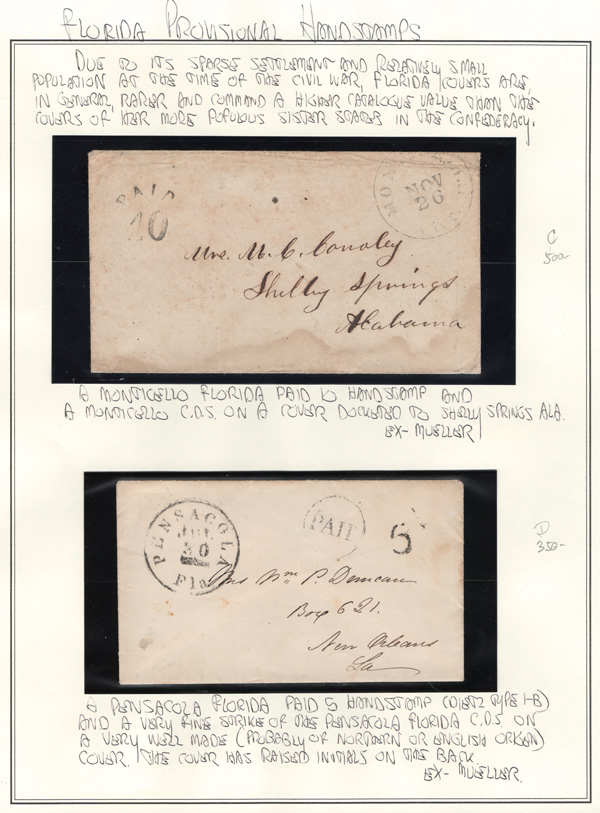 FLORIDA PROVISIONAL HANDSTAMPS
DUE TO ITS SPARSE SETTLEMENT AND RELATIVELY SMALL
POPULATION AT THE TIME OF THE CIVIL WAR, FLORIDA COVERS ARE,
IN GENERAL, RARER AND COMMAND A HIGHER CATALOGUE VALUE THAN THE
COVERS OF HER MORE POPULOUS SISTER STATES IN THE CONFEDERACY.
PAID
10
NOV
26
Mrs. M. C.
Shelby Springs
Alabama
C
500-
A MONTICELLO FLORIDA PAID 10 HANDSTAMP AND
A MONTICELLO C.D.S. ON A COVER DOCKETED TO SHELBY SPRINGS ALA.
EX- MUELLER
PENSACOLA
JUL
30
Fla
PAID
5
Mrs Wm P. Duncan
Box 621.
New Orleans
La
D
350-
A PENSACOLA FLORIDA PAID 5 HANDSTAMP (DIETZ TYPE I-B)
AND A VERY FINE STRIKE OF THE PENSACOLA FLORIDA C.D.S. ON
A VERY WELL MADE (PROBABLY OF NORTHERN OR ENGLISH ORIGEN)
COVER. THE COVER HAS RAISED INITIALS ON THE BACK.
EX- MUELLER.